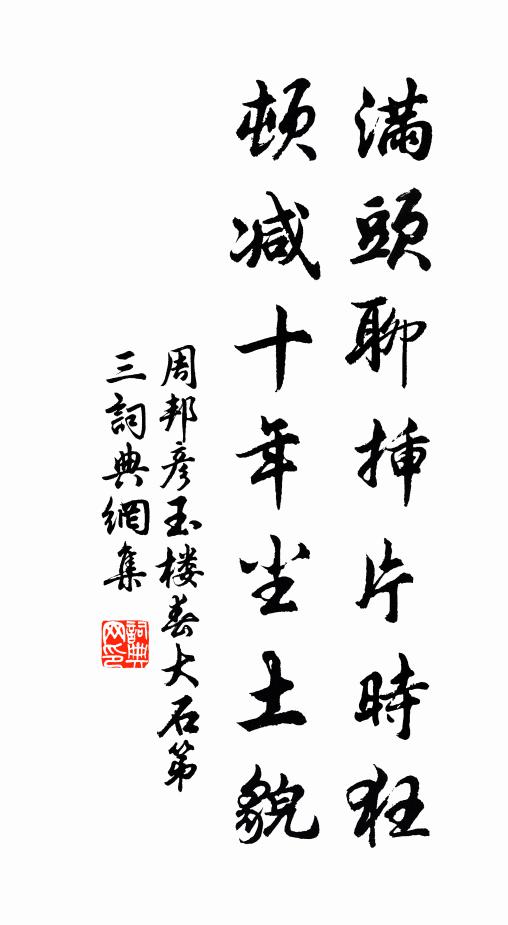 滿頭聊插片時狂
頓减十年尘土貌
周邦彦玉楼春大石第
三詞典網集
詞典网印